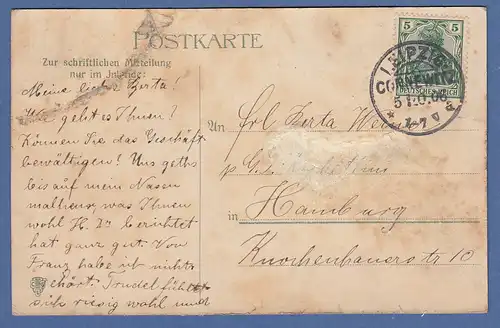 POSTKARTE
Zur schriftlichen Mitteilung
nur im Inlande:
Meine liebe Berta!
Wie geht es Ihnen?
Können Sie das Geschäft
bewältigen! Uns gehts
bis auf mein Nasen
malheur, was Ihnen
wohl H. Dr berichtet
hat ganz gut. Von
Franz habe ich nichts
gehört. Trudel fühlt
sich riesig wohl und
5 5
DEUTSCHES REICH
LEIPZIG
CONNEWITZ
* 7-7 V a
An
Frl Berta
p.
in Hamburg
Knochenhauerstr 10